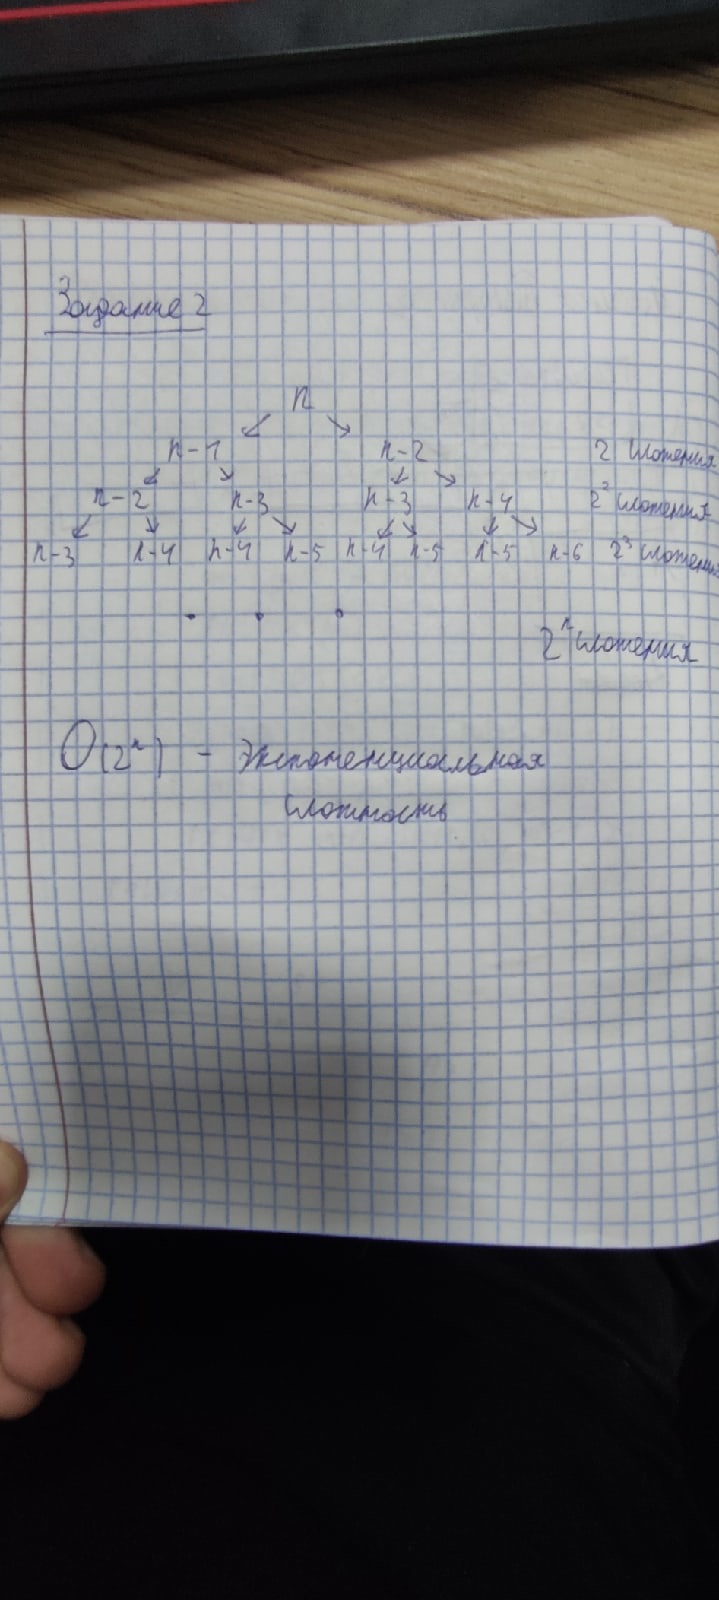 Задание 2
n
n-1 n-2 2 сложения
n-2 n-3 n-3 n-4 2² сложения
n-3 n-4 n-4 n-5 n-4 n-5 n-5 n-6 2³ сложения
. . .
2ⁿ сложения
O(2ⁿ) - Экспоненциальная
сложность